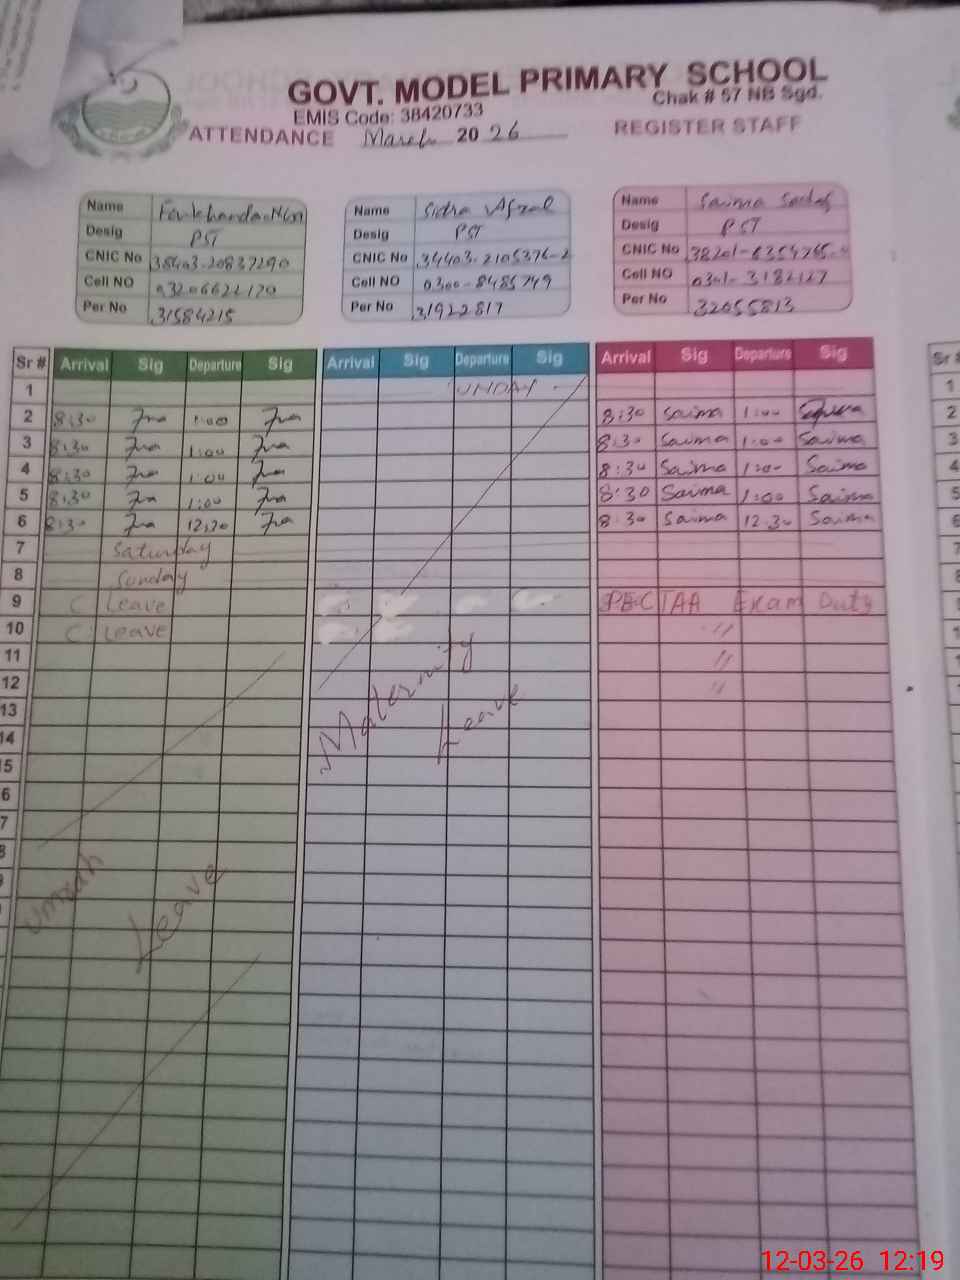 GOVT. MODEL PRIMARY SCHOOL
EMIS Code: 38420733 Chak # 57 NB Sgd.
ATTENDANCE March 20 26 REGISTER STAFF
Name Name Sidra Afzal Name Saima
Desig PST Desig PST Desig PST
CNIC No 38403-20837290 CNIC No 34403-2105376-2 CNIC No
Cell NO 03206622120 Cell NO 0300-8485749 Cell NO 0301-3182127
Per No 31584215 Per No 31922817 Per No 32055813
Sr # Arrival Sig Departure Sig Arrival Sig Departure Sig Arrival Sig Departure Sig Sr #
1 UNDAY 1
2 8:30 1:00 8:30 Saima 1:00 2
3 8:30 1:00 8:30 Saima 1:00 Saima 3
4 8:30 1:00 8:30 Saima 1:00 Saima 4
5 8:30 1:00 8:30 Saima 1:00 Saima 5
6 8:30 12:30 8:30 Saima 12:30 Saima 6
7 Saturday 7
8 Sunday
9 C Leave PECTAA Exam Duty
10 C Leave "
11 "
12 "
13 Maternity
14 Leave
15
6
7
8
Umrah
Leave
12-03-26 12:19